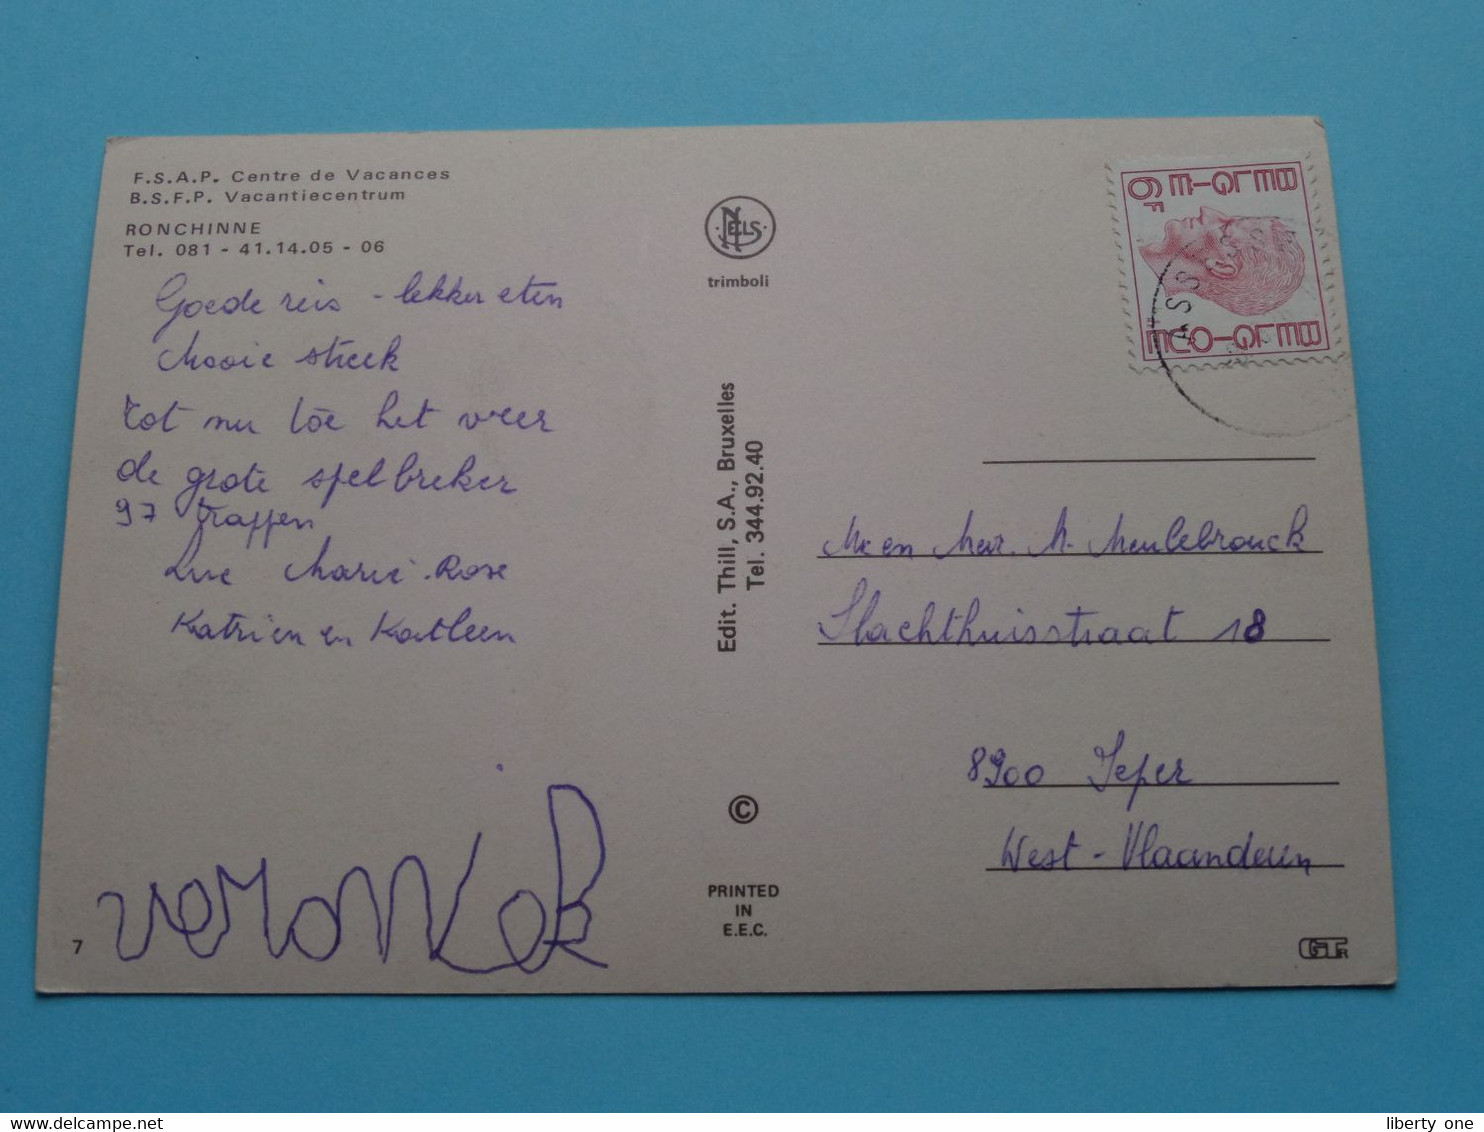 F.S.A.P. Centre de Vacances
B.S.F.P. Vacantiecentrum
RONCHINNE
Tel. 081 - 41.14.05 - 06
Goede reis - lekker eten
Mooie streek
tot nu toe het weer
de grote spelbreker
97 trappen
Luc Marie-Rose
Katrien en Katleen
veronick
7
NELS
trimboli
Edit. Thill, S.A., Bruxelles
Tel. 344.92.40
©
PRINTED
IN
E.E.C.
BELGIE
6F
BELGIQUE
ASS
Mr en Mevr. M. Meulebrouck
Slachthuisstraat 18
8900 Ieper
West-Vlaanderen
liberty one